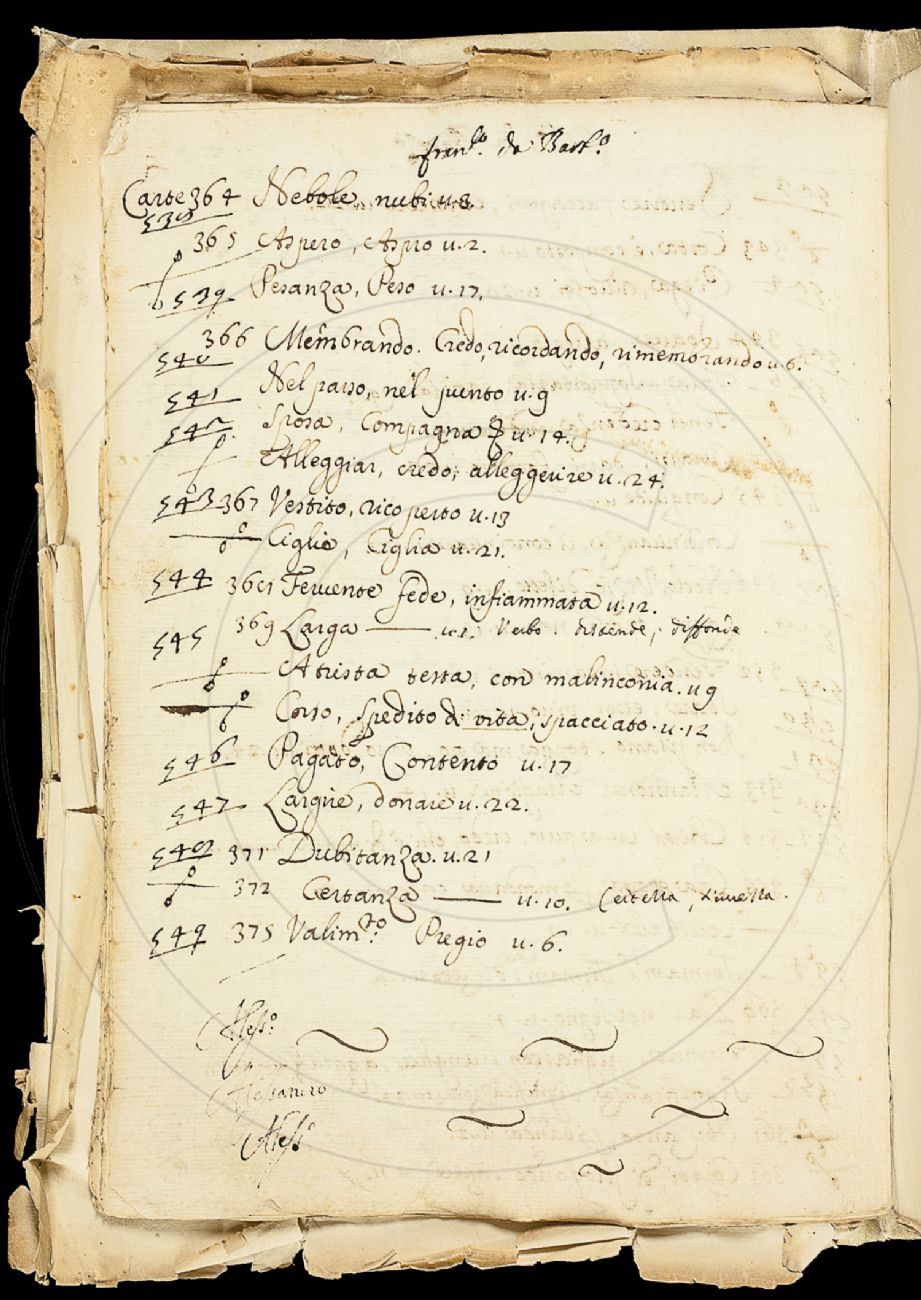 fran.co da Bart.o
Carte 364 Nebole, nubi u.8
539
365 Aspero, Aspro u.2.
539 Pesanza, Peso u.17.
366 Membrando. Credo, ricordando, rimembrando u.6.
540
541 Nel passo, nel punto u.9
542 Sposa, Compagna u.14.
Alleggiar, credo, alleggerire u.24.
543 367 Vestito, ricoperto u.13
Ciglio, Ciglia u.21.
544 368 Fervente fede, infiammata u.12.
545 369 Larga —— u.1. Verbo. distende, diffonde
Atrista testa, con malinconia. u.9
Corso, Spedito di vita, spacciato. u.12
546 Pagato, Contento u.17
547 Largire, donare u.22.
548 371 Dubitanza. u.21
372 Certanza —— u.10. Certezza,
549 375 Valim.to Pregio u.6.
Aless.o
Alessandro
Aless.o